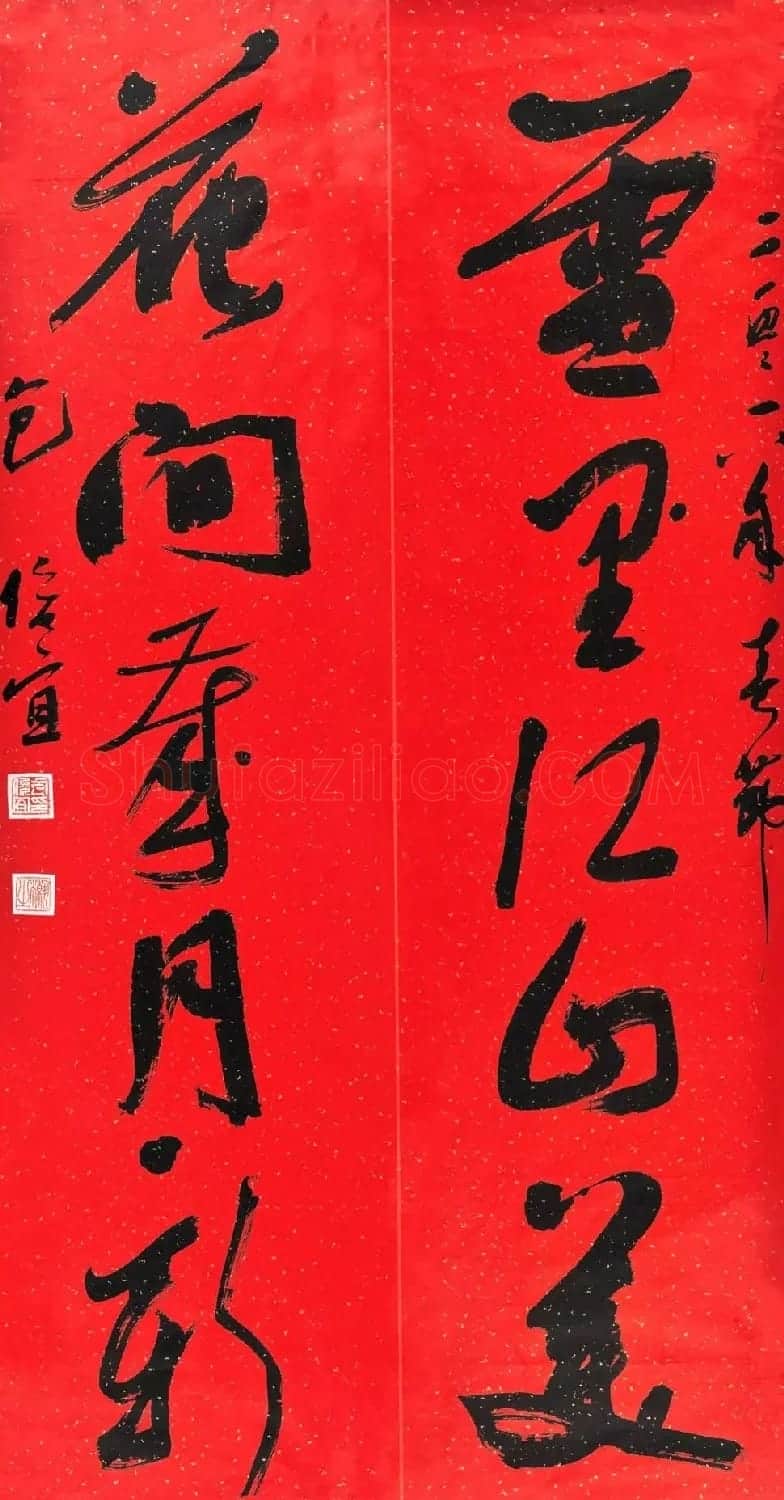 雪里江山美
花间岁月新
二〇一八年春节
包信宜
Shufaziliao.COM